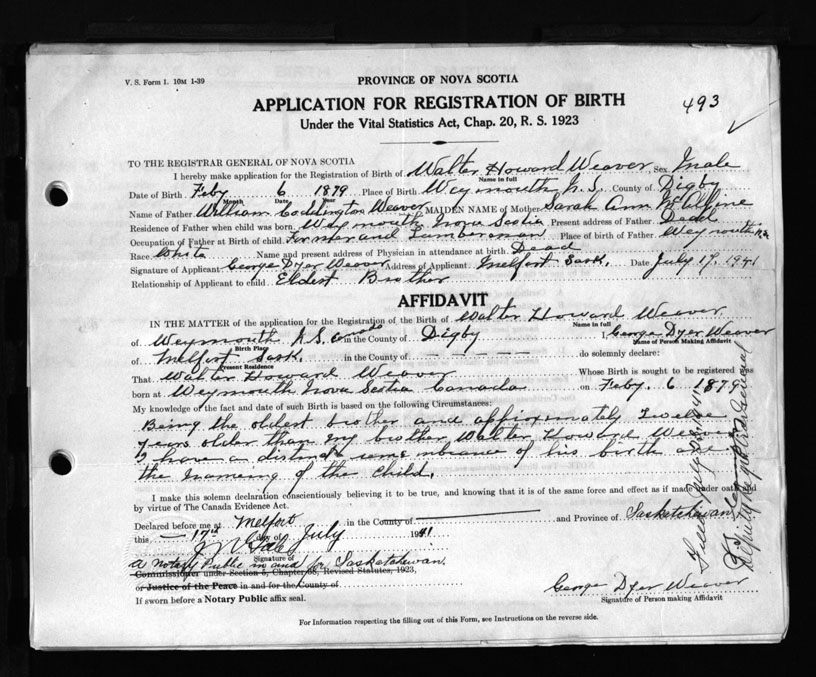 V. S. Form 1. 10M 1-39
PROVINCE OF NOVA SCOTIA
APPLICATION FOR REGISTRATION OF BIRTH
493
Under the Vital Statistics Act, Chap. 20, R. S. 1923
TO THE REGISTRAR GENERAL OF NOVA SCOTIA
I hereby make application for the Registration of Birth of Walter Howard Weaver Sex Male
Name in full
Date of Birth Feby 6 1879 Place of Birth Weymouth N.S. County of Digby
Month Day Year
Name of Father William Coddington Weaver MAIDEN NAME of Mother Sarah Ann McAlpine
Residence of Father when child was born Weymouth Nova Scotia Present address of Father Dead
Occupation of Father at Birth of child Farmer and Lumberman Place of birth of Father Weymouth N.S.
Race White Name and present address of Physician in attendance at birth Dead
Signature of Applicant George Dyer Weaver Address of Applicant Melfort Sask. Date July 17, 1941
Relationship of Applicant to child Eldest Brother
AFFIDAVIT
IN THE MATTER of the application for the Registration of the Birth of Walter Howard Weaver
Name in full
of Weymouth N.S. Canada in the County of Digby I, George Dyer Weaver
Birth Place
Name of Person Making Affidavit
of Melfort Sask. in the County of do solemnly declare:
Present Residence
That Walter Howard Weaver Whose Birth is sought to be registered was
born at Weymouth Nova Scotia Canada on Feby. 6 1879
My knowledge of the fact and date of such Birth is based on the following Circumstances:
Being the oldest brother and approximately Twelve
years older than my brother Walter Howard Weaver
I have a distinct remembrance of his birth and
the nameing of the child.
I make this solemn declaration conscientiously believing it to be true, and knowing that it is of the same force and effect as if made under oath and
by virtue of The Canada Evidence Act.
Declared before me at Melfort in the County of and Province of Saskatchewan
this 17th day of July 1941
Signature of
A Notary Public in and for Saskatchewan.
Commissioner under Section 5, Chapter 38, Revised Statutes, 1923,
or Justice of the Peace in and for the County of
If sworn before a Notary Public affix seal.
George Dyer Weaver
Signature of Person making Affidavit
For Information respecting the filling out of this Form, see Instructions on the reverse side.
Filed
Deputy Registrar General